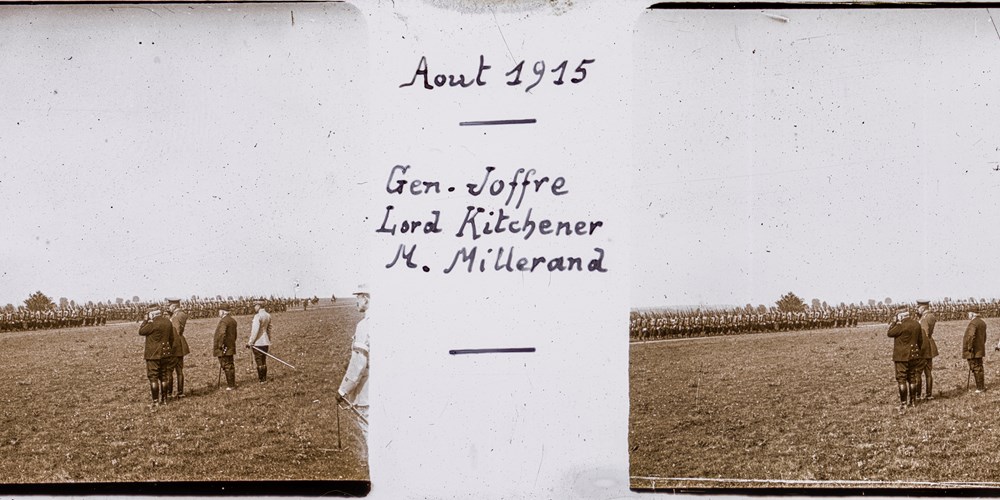 Aout 1915
Gen. Joffre
Lord Kitchener
M. Millerand